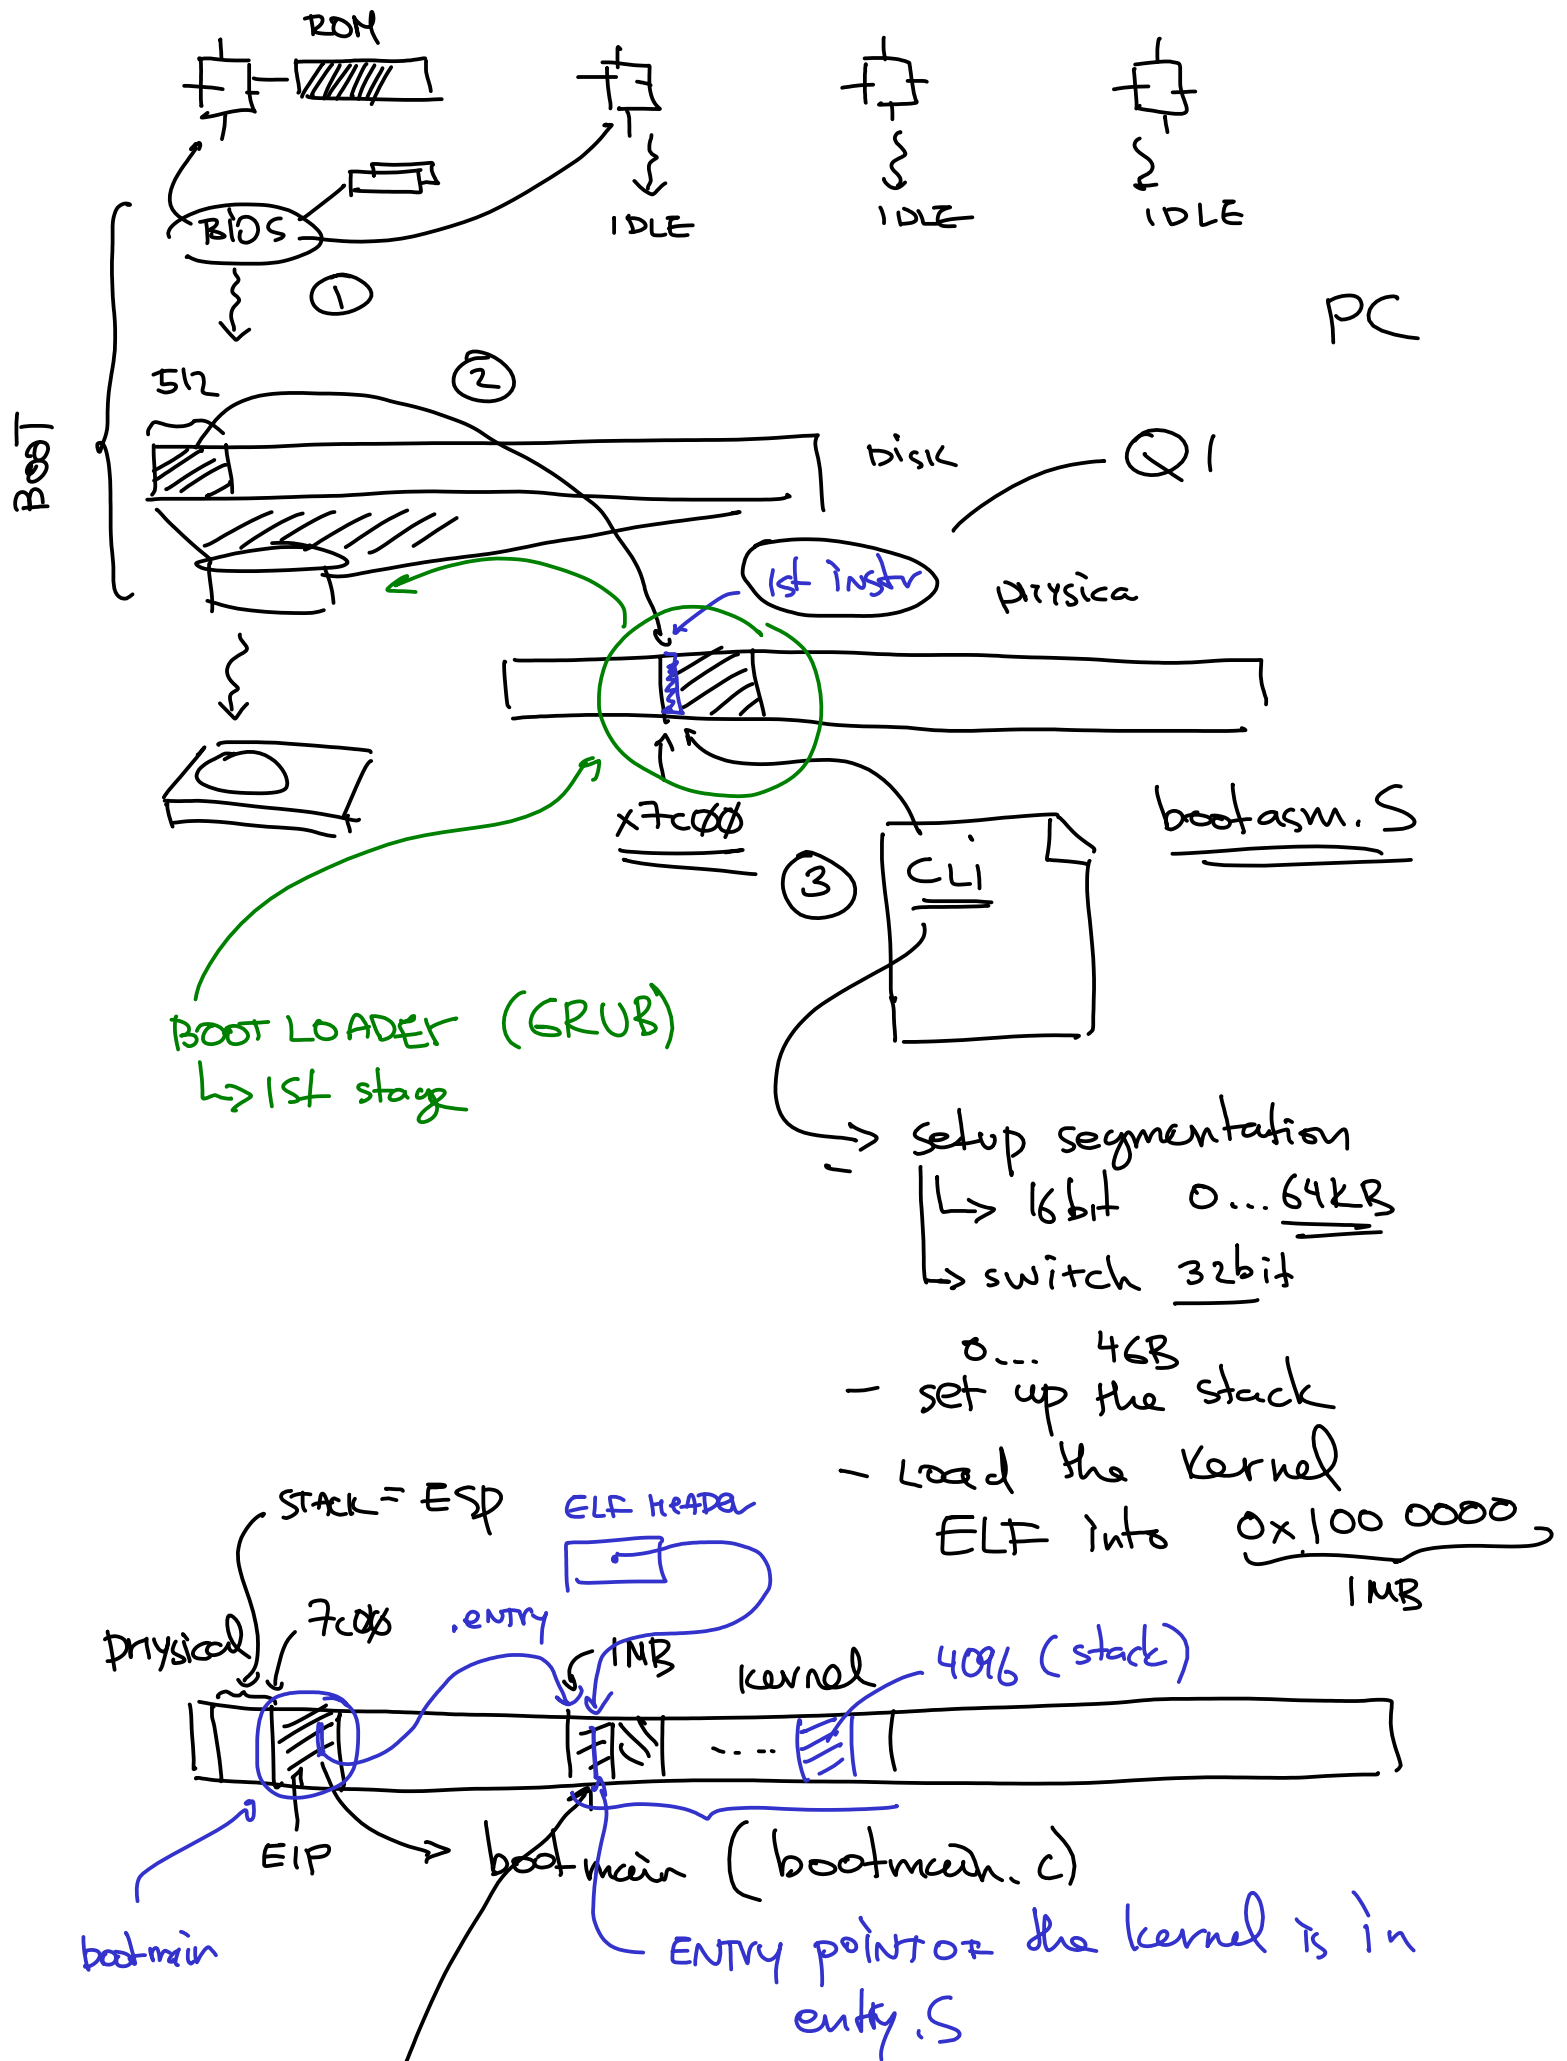 ROM
BIOS
IDLE
IDLE
IDLE
1
PC
512
2
BOOT
DISK
Q1
1st instr
physica
x7c00
bootasm.S
3
CLi
BOOT LOADER (GRUB)
1st stage
setup segmentation
16bit 0...64KB
switch 32bit
0... 4GB
- set up the stack
- Load the kernel
ELF into 0x100 0000
1MB
STACK = ESP
ELF HEADER
physical
7c00
.entry
1MB
kernel
4096 (stack)
....
EIP
bootmain (bootmain.c)
bootmain
ENTRY POINT OF the kernel is in
entry.S